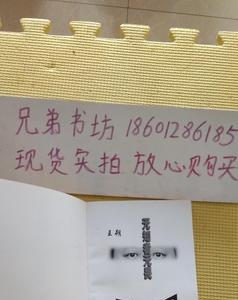 兄弟书坊 18601286185
现货实拍 放心购买
王朔
无知者无畏